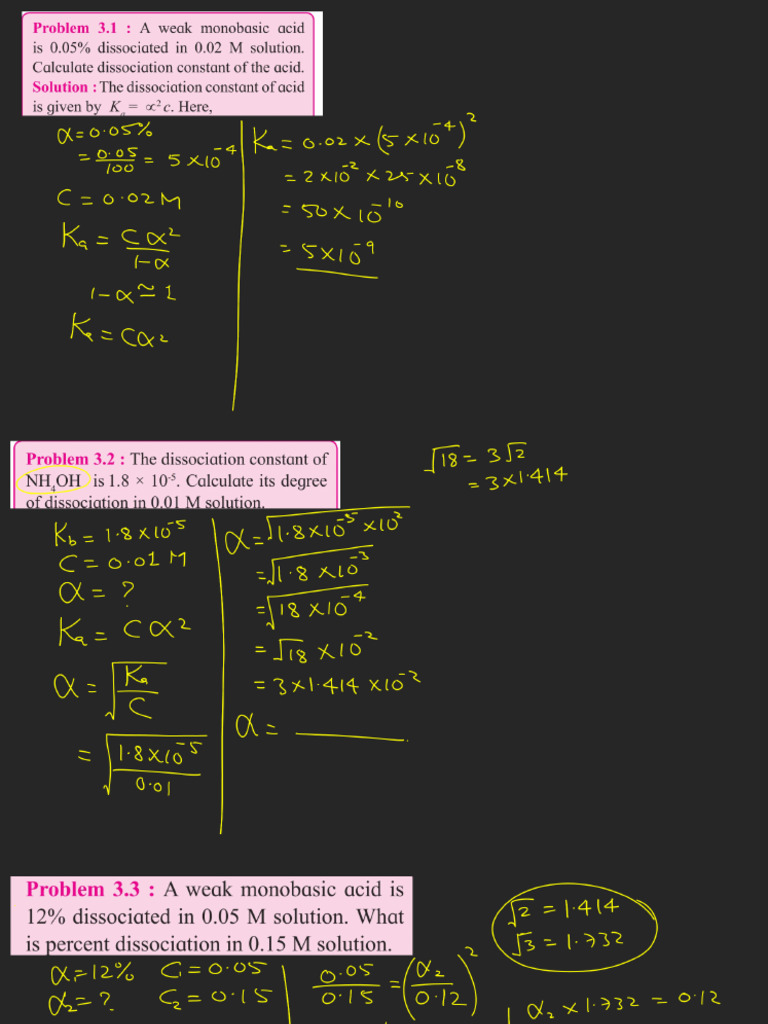 Problem 3.1 : A weak monobasic acid
is 0.05% dissociated in 0.02 M solution.
Calculate dissociation constant of the acid.
Solution : The dissociation constant of acid
is given by Kₐ = ∝²c. Here,
α = 0.05%
= 0.05/100 = 5 × 10⁻⁴
C = 0.02 M
Kₐ = Cα²/1-α
1-α ≃ 1
Kₐ = Cα²
Kₐ = 0.02 × (5 × 10⁻⁴)²
= 2 × 10⁻² × 25 × 10⁻⁸
= 50 × 10⁻¹⁰
= 5 × 10⁻⁹
Problem 3.2 : The dissociation constant of
NH₄OH is 1.8 × 10⁻⁵. Calculate its degree
of dissociation in 0.01 M solution.
√18 = 3√2
= 3 × 1.414
K_b = 1.8 × 10⁻⁵
C = 0.01 M
α = ?
Kₐ = Cα²
α = √(Kₐ/C)
= √(1.8 × 10⁻⁵/0.01)
α = √(1.8 × 10⁻⁵ × 10²)
= √(1.8 × 10⁻³)
= √(18 × 10⁻⁴)
= √18 × 10⁻²
= 3 × 1.414 × 10⁻²
α = ______
Problem 3.3 : A weak monobasic acid is
12% dissociated in 0.05 M solution. What
is percent dissociation in 0.15 M solution.
√2 = 1.414
√3 = 1.732
α₁ = 12% C₁ = 0.05
α₂ = ? C₂ = 0.15
0.05/0.15 = (α₂/0.12)²
α₂ × 1.732 = 0.12